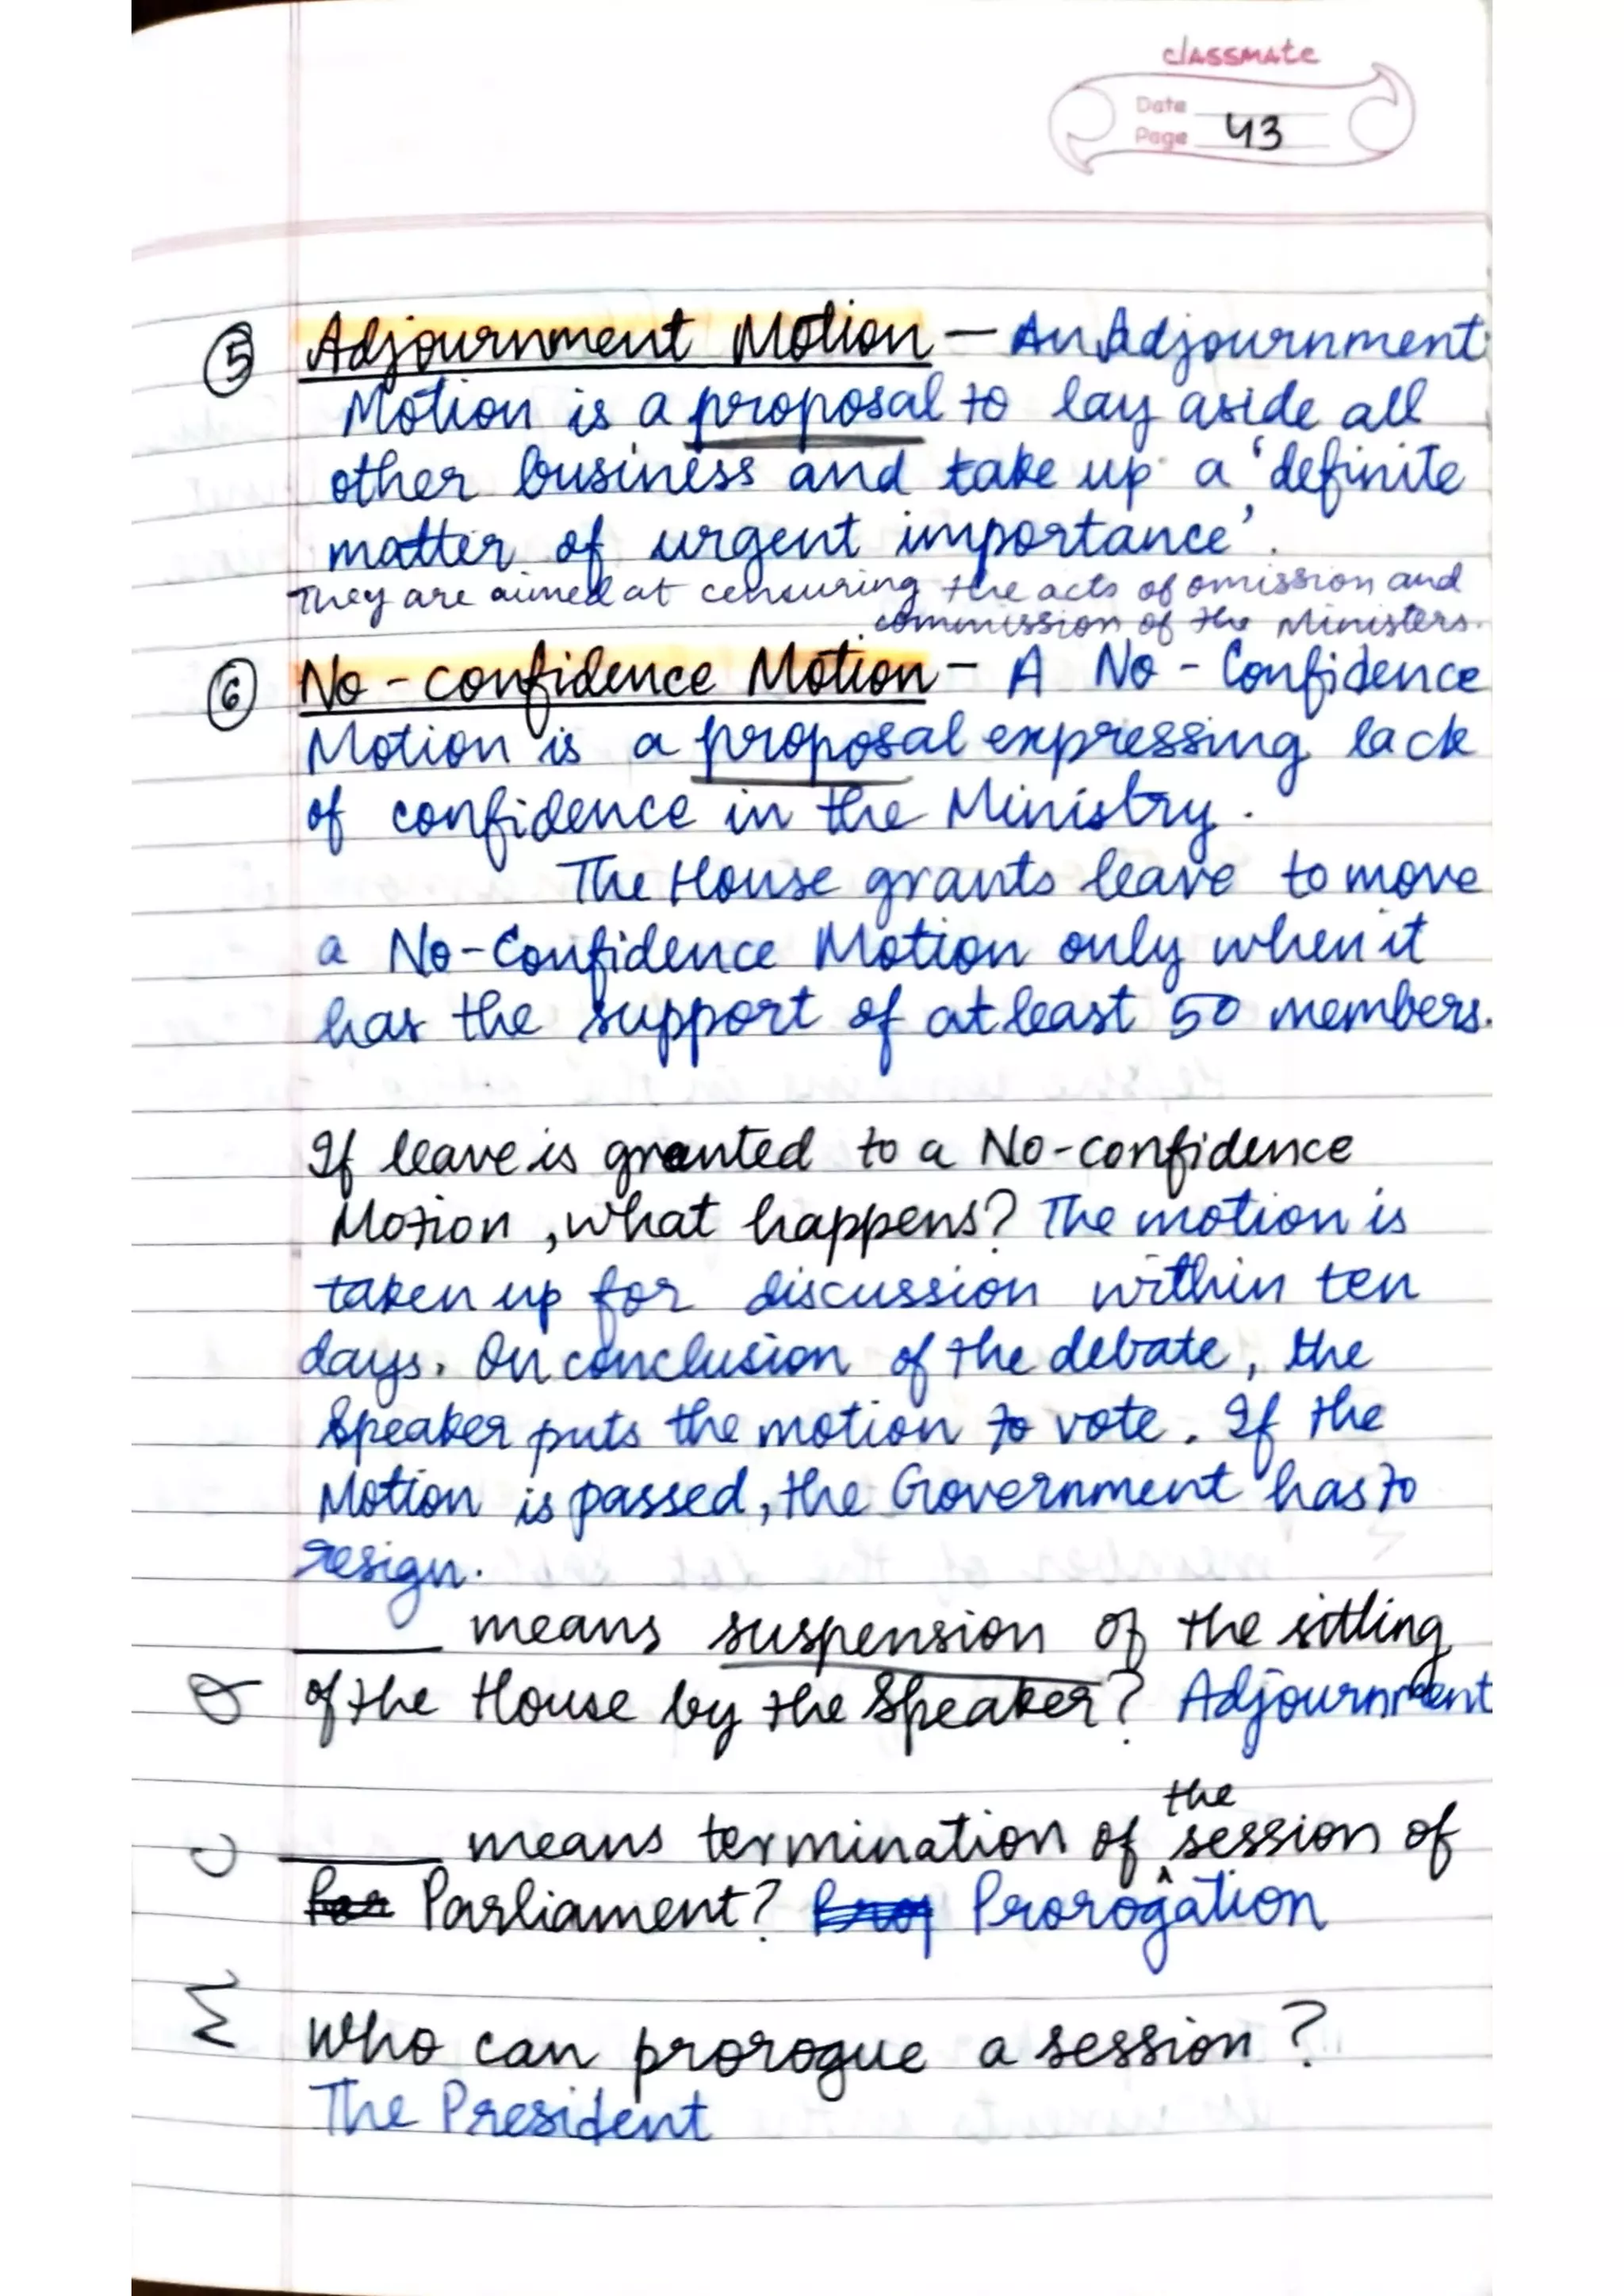 classmate
Date
Page 43
⑤ Adjournment Motion — An Adjournment
Motion is a proposal to lay aside all
other business and take up a 'definite
matter of urgent importance'.
They are aimed at censuring the acts of omission and
commission of the Ministers.
⑥ No-confidence Motion - A No-Confidence
Motion is a proposal expressing lack
of confidence in the Ministry.
The House grants leave to move
a No-Confidence Motion only when it
has the support of atleast 50 members.
If leave is granted to a No-confidence
Motion, what happens? The motion is
taken up for discussion within ten
days. On conclusion of the debate, the
Speaker puts the motion to vote. If the
Motion is passed, the Government has to
resign.
____ means suspension of the sitting
of the House by the Speaker? Adjournment
the
____ means termination of session of
Parliament? Prorogation
Who can prorogue a session?
The President